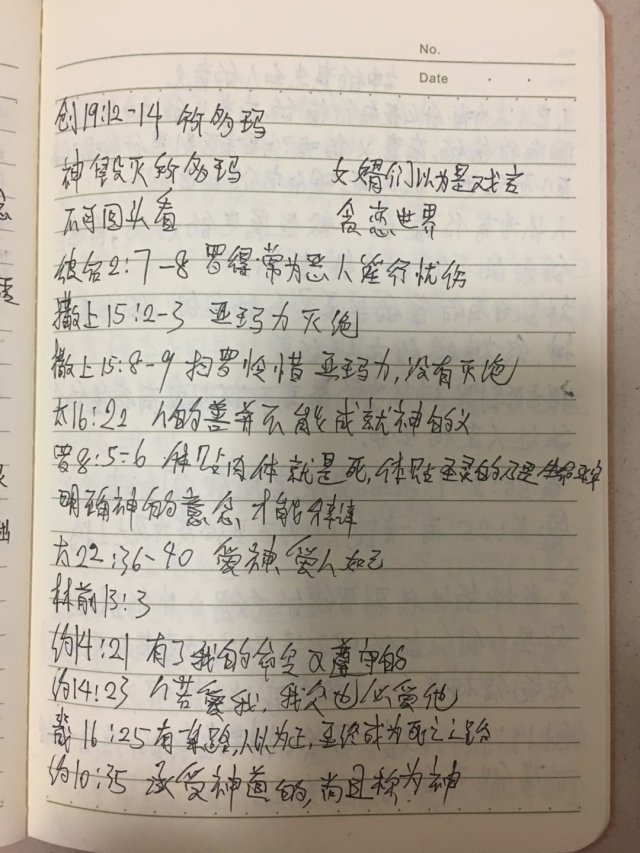 No.
Date
创19:12-14 所多玛
神毁灭所多玛 女婿们以为是戏言
不可回头看 贪恋世界
彼后2:7-8 罗得常为恶人淫行忧伤
撒上15:2-3 亚玛力 灭绝
撒上15:8-9 扫罗怜惜亚玛力,没有灭绝
太16:22 人的善并不能成就神的义
罗8:5-6 体贴肉体就是死,体贴圣灵的乃是生命平安
明确神的意念,才能体谅
太22:36-40 爱神,爱人如己
林前13:3
约14:21 有了我的命令又遵守的
约14:23 人若爱我,我父也必爱他
箴16:25 有一条路,人以为正,至终成为死亡之路
约10:35 承受神道的,尚且称为神